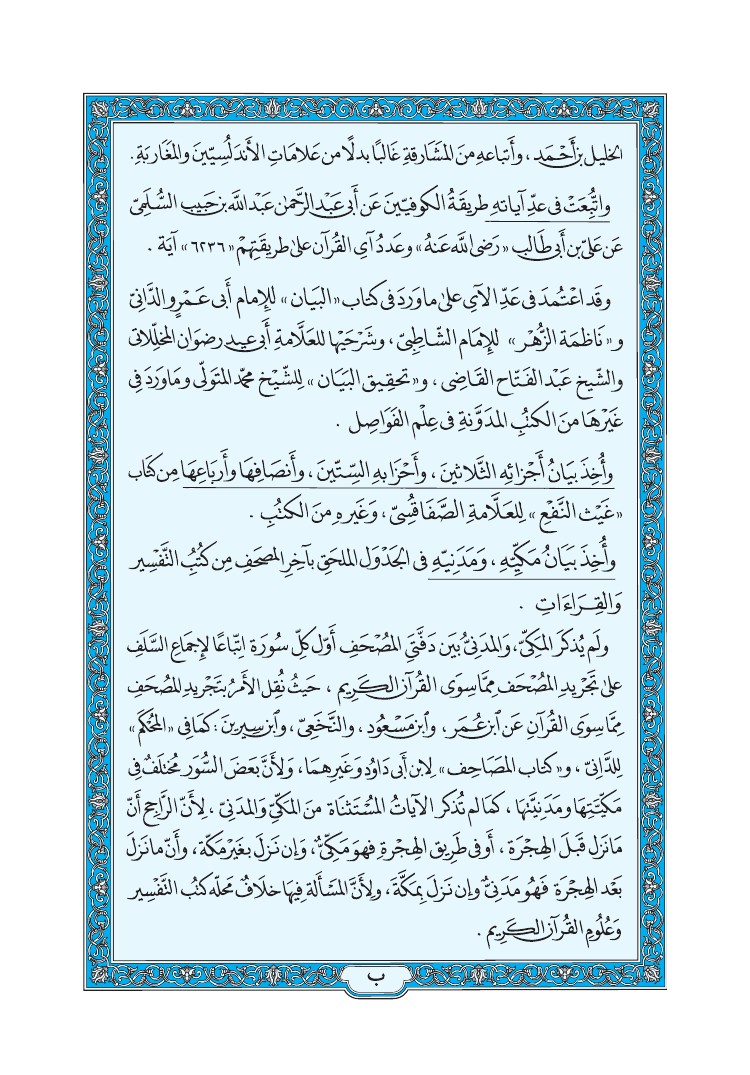 الخليل بن أَحْمَد ، وأَتباعهِ منَ المشَارقةِ غالبًا بدلًا من عَلامَاتِ الأَندَلُسِيّينَ والمغَاربَةِ .
واتُّبِعَتْ فى عدِّ آياته طريقَةُ الكوفيّينَ عَن أَبى عَبْد الرَّحمٰن عَبْد الله بن حَبيبٍ السُّلَمِىّ
عَن عَلىّ بن أَبى طَالبٍ «رَضِىَ اللهُ عَنْهُ» وعَددُ آىِ القُرآن على طريقَتِهِمْ «٦٢٣٦» آيَة .
وقد اعْتُمدَ فى عَدِّ الآىِ على ماوَردَ فى كتاب «البَيان» للإمام أَبى عَمْرٍو الدَّانىّ
و«نَاظمَة الزُّهْر» للإمَام الشَّاطِبىّ ، وشَرْحَيْها للعَلَّامةِ أَبى عيد رضوَان المخلّلاتى
والشّيخ عَبْد الفَتَّاح القَاضِى ، و«تحقِيق البَيَان» للشَّيخ محمّد المتَولّى ومَاوَردَ فى
غَيْرهَا منَ الكتُبِ المدَوَّنةِ فى عِلْم الفَوَاصِل .
وأُخِذَ بيَانُ أَجْزائِهِ الثَّلاثينَ ، وأَحْزابهِ السِّتّينَ ، وأَنصَافِها وأَربَاعِهَا مِن كتَاب
«غَيْث النَّفْعِ» لِلعَلَّامةِ الصَّفاقُسِىّ ، وَغَيرِهِ منَ الكتُبِ .
وأُخِذَ بيَانُ مَكّيّهِ ، وَمَدَنِيّهِ فى الجَدْوَل الملحَقِ بآخِرِ المصحَفِ مِن كتُبِ التَّفْسِير
وَالقِراءَاتِ .
ولَم يُذكَر المَكىُّ ، وَالمدَنىُّ بَين دَفَّتَىِ المُصْحَف أَوّلَ كلِّ سُورَة اتّبَاعًا لإجمَاع السَّلَفِ
على تَجْريدِ المُصْحَف مِمَّا سِوَى القُرآن الكَريم ، حَيثُ نُقِل الأَمرُ بتَجْريدِ المُصْحَفِ
مِمَّا سِوَى القُرآنِ عَن ابْن عُمَر ، وابْن مَسْعُود ، والنَّخَعِىّ ، وابْن سِيرينَ : كما فى «المُحْكَم»
لِلدَّانىّ ، و«كتاب المصَاحِف» لابن أبى دَاوُد وَغَيرهِمَا ، وَلأنَّ بَعضَ السُّوَر مُختَلَفٌ فى
مَكّيَّتِها ومَدنِيَّتِها ، كمَا لم تُذكر الآياتُ المُسْتَثنَاة منَ المكّىّ وَالمدَنىّ ، لأَنَّ الرَّاجح أنّ
مَا نَزل قَبلَ الهِجْرَة ، أَو فى طَريقِ الهِجْرَةِ فهوَ مَكّىٌّ ، وَإن نَزلَ بغَيرْ مَكّة ، وأَنّ ما نَزلَ
بَعْد الهِجْرَة فَهُو مَدَنىٌّ وإن نزَلَ بمكَّةَ ، وَلأَنَّ المَسْأَلة فِيهَا خلَافٌ محَلّه كتُب التَّفْسِير
وَعُلُومِ القُرآنِ الكَرِيم .
ب